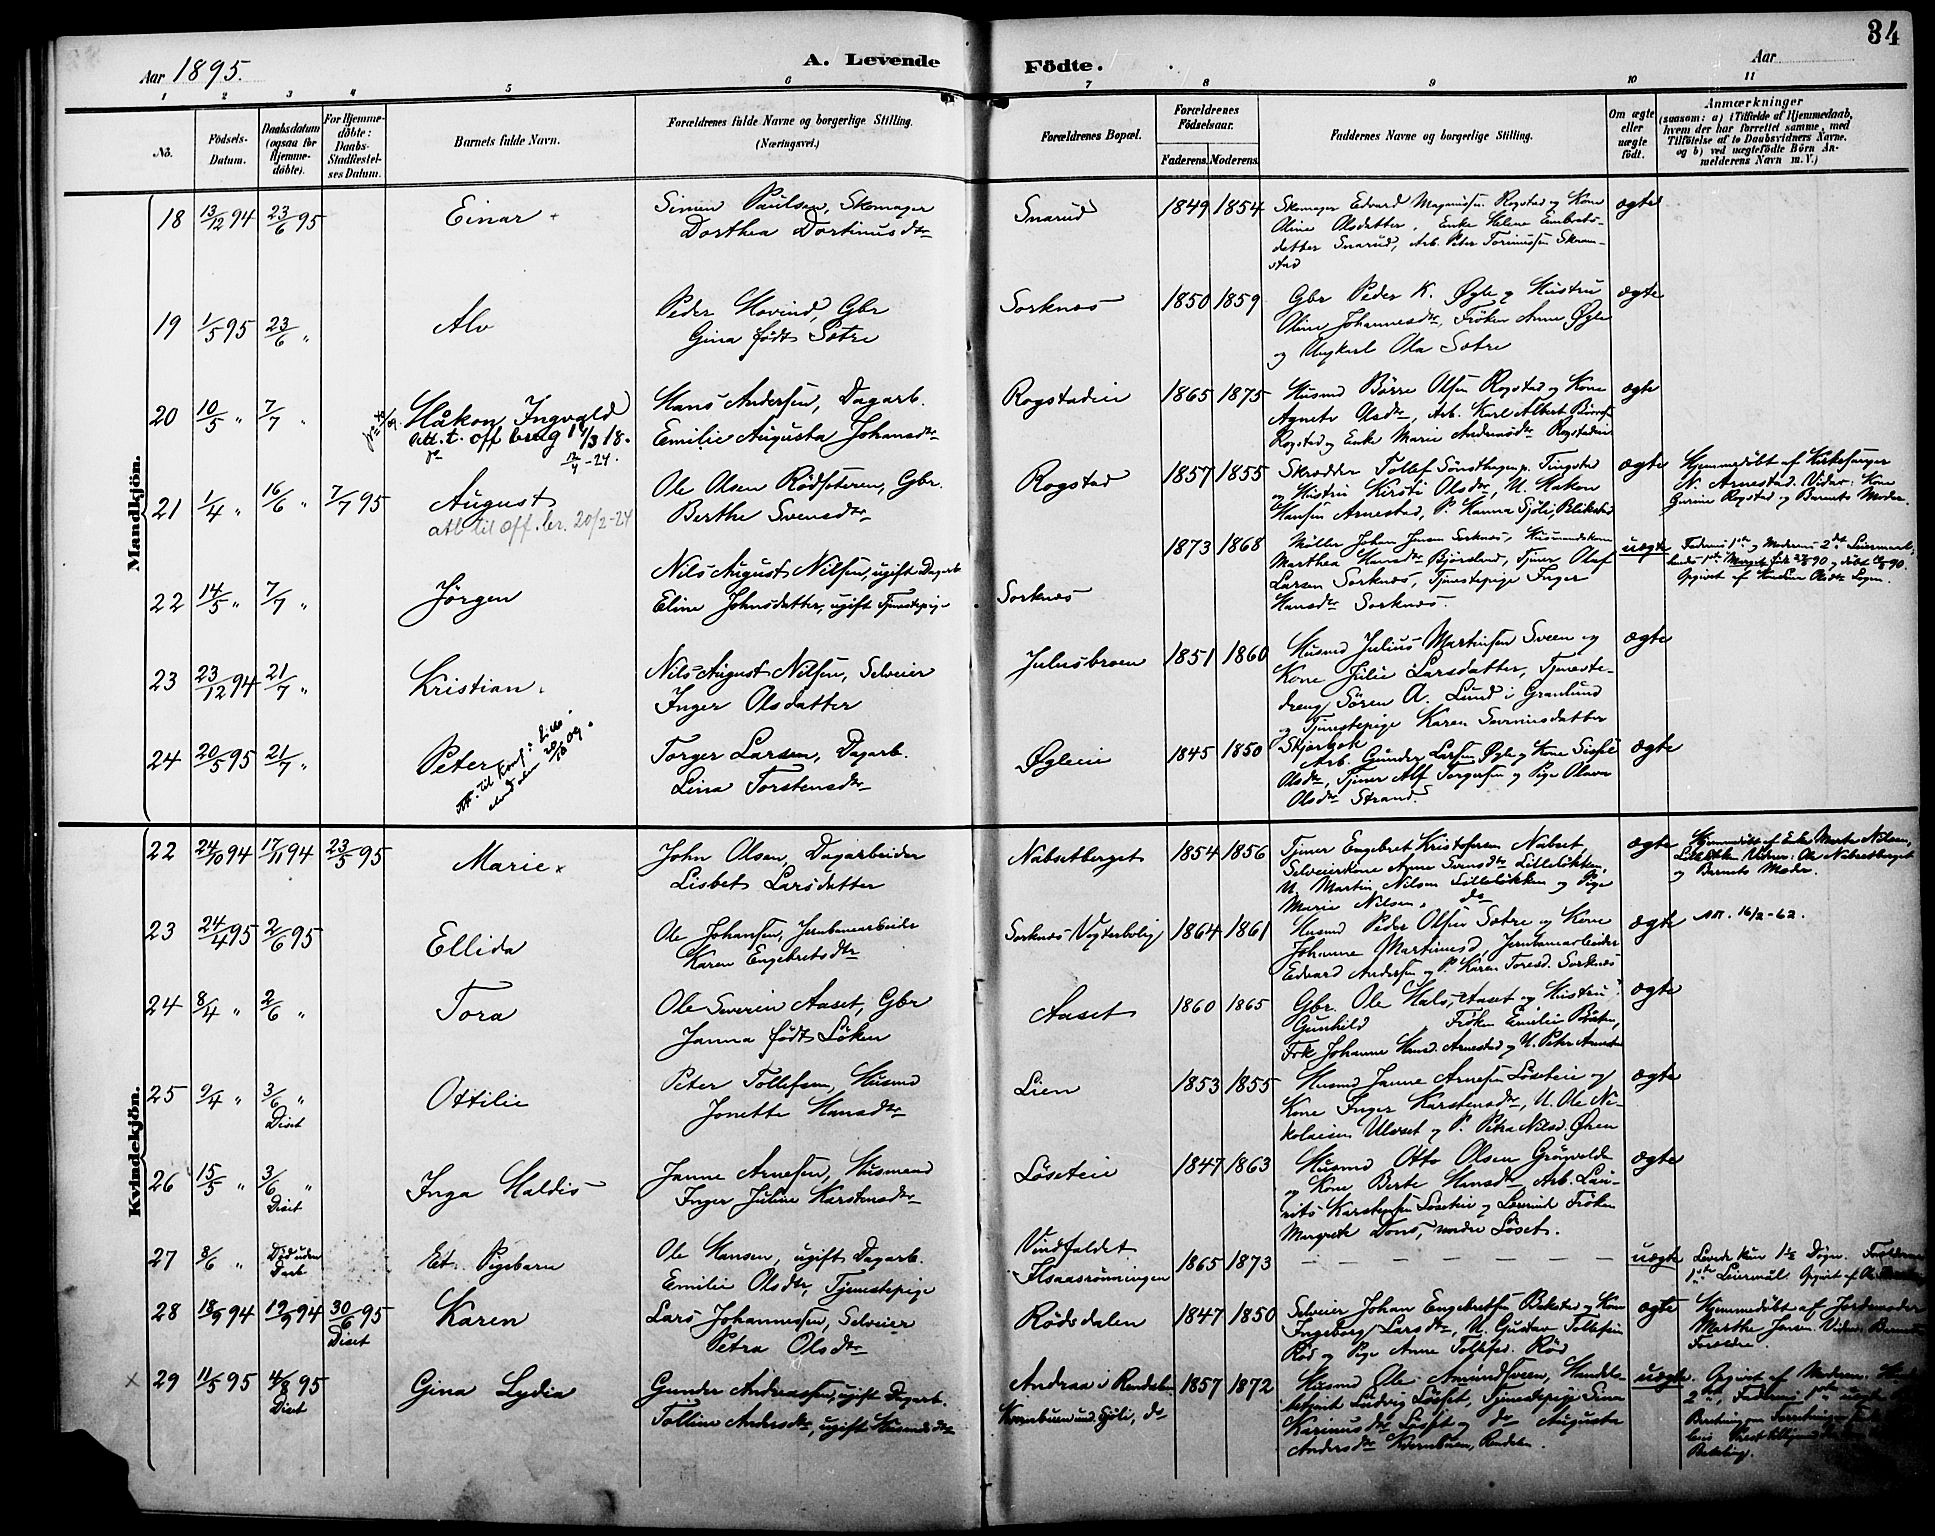 34
Aar 1895.
A. Levende Födte.
Aar
1 2 3 4 5 6 7 8 9 10 11
No.
Födsels-Datum.
Daabsdatum (ogsaa for Hjemmedöbte).
For Hjemmedöbte: Daabs-Stadfæstelses Datum.
Barnets fulde Navn.
Forældrenes fulde Navne og borgerlige Stilling.
(Næringsvei.)
Forældrenes Bopæl.
Forældrenes Födselsaar.
Faderens. Moderens.
Faddernes Navne og borgerlige Stilling.
Om ægte eller uægte födt.
Anmærkninger
(saasom: a) i Tilfælde af Hjemmedaab, hvem der har forrettet samme, med Tilföielse af to Daabsvidners Navne. og b) ved uægtefödte Börn Anmelderens Navn m. V.)
Mandkjön.
18 13/12 94 23/6 95 Einar
Simen Paulsen, Skomager
Dorthea Dortinusdtr
Snarud 1849 1854
Skomager Edvard Magnussen Rogstad og Kone
Oline Olsdatter, Enke Helene Embrets-
datter Snarud, Arb. Peter Torinussen Skram-
stad
ægte
19 1/5 95 23/6 " Alv
Peder Hovind, Gbr
Gina født Sætre
Sorknes 1850 1859
Gbr Peder K. Øgle og Hustru
Oline Johannesdtr, Frøken Anne Øgle
og Ungkarl Ola Sætre
ægte
20 10/5 " 7/7 " Håkon Ingvald
att. t. off brug 17/3 18.
12/4-24.
Hans Andersen, Dagarb.
Emilie Augusta Johansdtr
Rogstadeie 1865 1875
Husmd Børre Olsen Rogstad og Kone
Agnete Olsdtr, Arb. Karl Albert
Rogstad og Enke Marie Andersdtr Rogstadeie
ægte
21 1/4 " 16/6 " 7/7 95 August
att til off. br. 20/2-24
Ole Olsen Rödsæteren, Gbr.
Berthe Svensdtr
Rogstad 1857 1855
Skrædder Tollef Sønsthagen p. Tingstad
og Hustru Kirsti Olsdtr, U. Hakon
Hansen Arnestad, P. Hanna Sjöli, Blikstad
ægte
Hjemmedøbt af Kirkesanger
N. Arnestad. Vidner: Kone
Gurine Rogstad og Barnets Moder.
22 14/5 " 7/7 " Jörgen
Nils August Nilsen, ugift Dagarb
Eline Johnsdatter, ugift Tjenestepige
Sorknes 1873 1868
Møller Johan Jensen Sorknes, Husmandskone
Marthea Hansdtr Bjørsland, Tjener Olaf
Larsen Sorknes, Tjenestepige Inger
Hansdtr Sorknes.
uægte
Faderens 1ste og Moderens 2det Leiermaal,
23 23/12 94 21/7 " Kristian
Nils August Nilsen, Selveier
Inger Olsdatter
Julusbroen 1851 1860
Husmd Julius Martinsen Sveen og
Kone Julie Larsdatter, Tjeneste-
dreng Sören A. Lund i Granlund
og Tjenestepige Karen Severinsdatter
Skjærbæk
ægte
24 20/5 95 21/7 " Peter
Torger Larsen, Dagarb.
Lina Torstensdtr
Øgleeie 1845 1850
Arb. Gunder Larsen Øgle og Kone Sissel
Olsdtr, Tjener Alf Torgersen og Pige Olava
Olsdtr Strand.
ægte
Kvindekjön.
22 24/10 94 17/11 94 23/5 95 Marie
John Olsen, Dagarbeider
Lisbet Larsdatter
Nabsetberget 1854 1856
Tjener Engebret Kristofersen Nabset,
Selveierkone Anne Svensdtr Lilleløkken,
U. Martin Nilsen Lilleløkken og Pige
Marie Nilsen, do
ægte
Hjemmedøbt af Enke Marte Nilsen,
Lilleløkken. Vidner: Ole Nabsetberget
og Barnets Moder.
23 24/4 95 2/6 95 Ellida
Ole Johansen, Jernbanearbeider
Karen Engebretsdtr
Sorknes Vogterbolig 1864 1861
Husmd Peder Olsen Sætre og Kone
Johanne Martinusd, Jernbanearbeider
Edvard Andersen og P. Karen Toresd. Sorknes
ægte
att. 16/2-62.
24 8/4 " 2/6 " Tora
Ole Severin Aaset, Gbr
Janna født Löken
Aaset 1860 1865
Gbr. Ole Hals, Aaset og Hustru
Gunhild Frøken Emilie
Frk Johanne Hansd. Arnestad og U. Peter Arnestad
ægte
25 2/4 " 3/6 " Diset Ottilie
Peter Tollefsen, Husmd
Jonette Hansdtr
Lien 1853 1855
Husmd Janne Arnesen Løseteie og
Kone Inger Karstensdtr, U. Ole Ni-
kolaisen Ulvset og P. Petra Nilsd. Øhren
ægte
26 15/5 " 3/6 " Diset Inga Haldis
Janne Arnesen, Husmand
Inger Juline Karstensdtr
Løseteie 1847 1863
Husmd Otto Olsen Grönvolde
og Kone Berte Hansdtr, Arb. Lau-
rits Karstensen Løseteie og Lærerinde Frøken
Margrete Dons, nordre Løset.
ægte
27 3/6 " Død uden Daab Et Pigebarn
Ole Hansen, ugift Dagarb.
Emilie Olsdtr, Tjenestepige
Vindfaldet
Ilsaasrønningen 1865 1873
uægte
Levede kun 1½ Døgn.
28 18/9 94 19/9 94 30/6 95 Diset Karen
Lars Johannessen, Selveier
Petra Olsdtr
Rödsdalen 1847 1850
Selveier Johan Engebretsen Bækstad og Kone
Ingeborg Larsdtr, U. Gustav Tollefsen
Röd og Pige Anne Tollefsd. Röd
ægte
Hjemmedøbt af Jordemoder
Marthe Jensen. Vidner: Barnets
Forældre.
29 11/5 95 4/8 95 Diset Gina Lydia
Gunder Andreassen, ugift Dagarb.
Tolline Andersdtr, ugift Husmdsdtr
Andraa i Rendalen
1857 1872
Husmd Ole Amundsveen, Handels-
betjent Ludvig Løset, Tjenestepige Lina
Karinusdtr Løset og do Augusta
Andersdtr Kværnbuen, Rendalen.
uægte
Opgivet af Moderen.